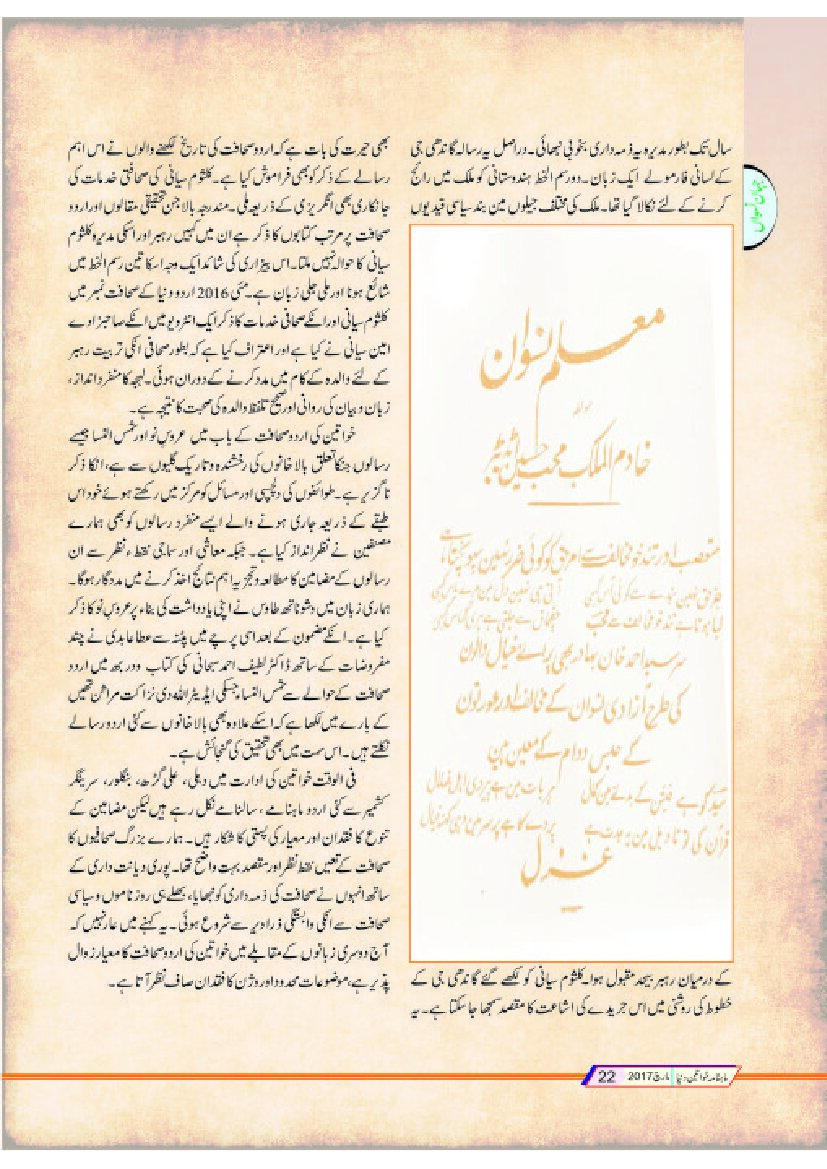 سال تک بطور مدیرہ یہ ذمہ داری بخوبی نبھائی۔ دراصل یہ رسالہ گاندھی جی
کے لسانی فارمولے ایک زبان۔ دورسم الخط ہندوستانی کو ملک میں رائج
کرنے کے لئے نکالا گیا تھا۔ ملک کی مختلف جیلوں مین بند سیاسی قیدیوں
معلم نسوان
مولفہ
خادم الملک محب حسین ایڈیٹر
متعصب اور تند خو مخالف سے
سر سید احمد خان بہادر بھی پرانے خیال والون
کی طرح آزادی نسوان کے مخالف اور عورتون
کے حبس دوام کے معین ہین
غزل
کے درمیان رہبر بیحد مقبول ہوا۔ کلثوم سیانی کو لکھے گئے گاندھی جی کے
خطوط کی روشنی میں اس جریدے کی اشاعت کا مقصد سمجھا جاسکتا ہے۔ یہ
بھی حیرت کی بات ہے کہ اردو صحافت کی تاریخ لکھنے والوں نے اس اہم
رسالے کے ذکر کو بھی فراموش کیا ہے۔ کلثوم سیانی کی صحافتی خدمات کی
جانکاری بھی انگریزی کے ذریعہ ملی۔ مندرجہ بالا جن تحقیقی مقالوں اور اردو
صحافت پر مرتب کتابوں کا ذکر ہے ان میں کہیں رہبر اور اسکی مدیرہ کلثوم
سیانی کا حوالہ نہیں ملتا۔ اس بیزاری کی شائد ایک وجہ اسکا تین رسم الخط میں
شائع ہونا اور ملی جلی زبان ہے۔ مئی 2016 اردو دنیا کے صحافت نمبر میں
کلثوم سیانی اور انکے صحافی خدمات کا ذکر ایک انٹرویو میں انکے صاحبزادے
امین سیانی نے کیا ہے اور اعتراف کیا ہے کہ بطور صحافی انکی تربیت رہبر
کے لئے والدہ کے کام میں مدد کرنے کے دوران ہوئی۔ لہجہ کا منفرد انداز،
زبان و بیان کی روانی اور صحیح تلفظ والدہ کی صحبت کا نتیجہ ہے۔
خواتین کی اردو صحافت کے باب میں عروس نو اور شمس النسا جیسے
رسالوں جنکا تعلق بالا خانوں کی رخشندہ و تاریک گلیوں سے ہے، انکا ذکر
ناگزیر ہے۔ طوائفوں کی دلچسپی اور مسائل کو مرکز میں رکھتے ہوئے خود اس
طبقے کے ذریعہ جاری ہونے والے ایسے منفرد رسالوں کو بھی ہمارے
مصنفین نے نظر انداز کیا ہے۔ جبکہ معاشی اور سماجی نقطہ نظر سے ان
رسالوں کے مضامین کا مطالعہ و تجزیہ اہم نتائج اخذ کرنے میں مددگار ہوگا۔
ہماری زبان میں دشوناتھ طاوس نے اپنی یادداشت کی بناء پر عروس نو کا ذکر
کیا ہے۔ انکے مضمون کے بعد اسی پرچے میں پٹنہ سے عطا عابدی نے چند
مفروضات کے ساتھ ڈاکٹر لطیف احمد سبحانی کی کتاب ودربھ میں اردو
صحافت کے حوالے سے شمس النساء جسکی ایڈیٹر اللہ دی نزاکت مراٹھن تھیں
کے بارے میں لکھا ہے کہ اسکے علاوہ بھی بالا خانوں سے کئی اردو رسالے
نکلتے ہیں۔ اس سمت میں بھی تحقیق کی گنجائش ہے۔
فی الوقت خواتین کی ادارت میں دہلی، علی گڑھ، بنگلور، سرینگر
کشمیر سے کئی اردو ماہنامے، سالنامے نکل رہے ہیں لیکن مضامین کے
تنوع کا فقدان اور معیار کی پستی کا شکار ہیں۔ ہمارے بزرگ صحافیوں کا
صحافت کے تعیں نقطہ نظر اور مقصد بہت واضح تھا۔ پوری دیانت داری کے
ساتھ انہوں نے صحافت کی ذمہ داری کو نبھایا، بھلے ہی روز ناموں و سیاسی
صحافت سے انکی وابستگی ذرا دیر سے شروع ہوئی۔ یہ کہنے میں عار نہیں کہ
آج دوسری زبانوں کے مقابلے میں خواتین کی اردو صحافت کا معیار زوال
پذیر ہے، موضوعات محدود اور وژن کا فقدان صاف نظر آتا ہے۔
جہان نسواں
ماہنامہ خواتین دنیا مارچ 2017 22